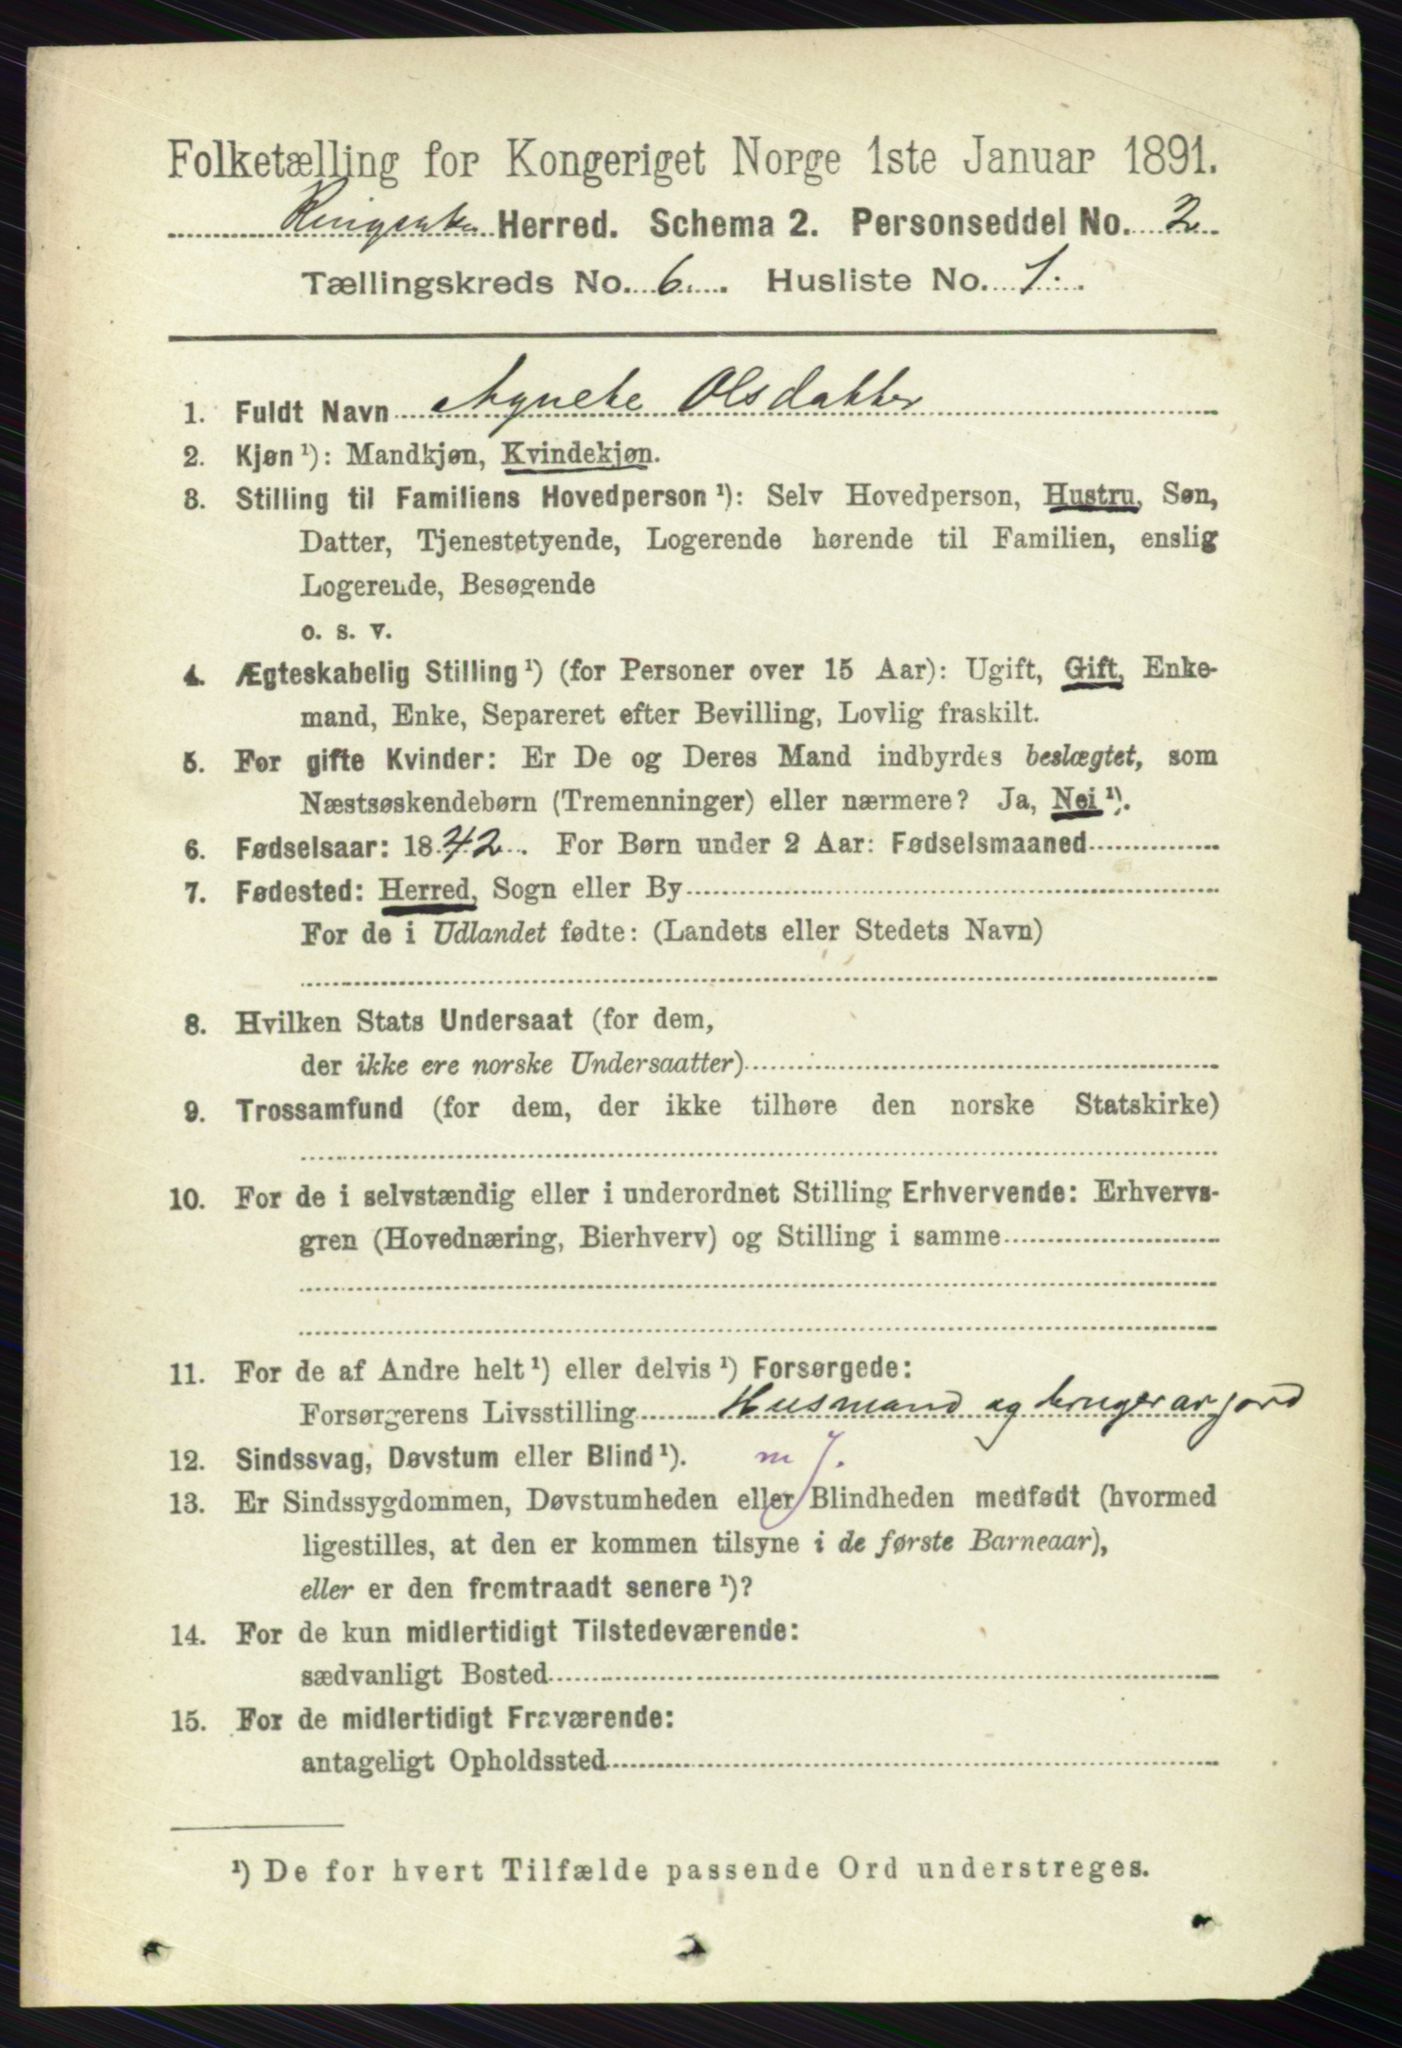 Folketælling for Kongeriget Norge 1ste Januar 1891.
Ringsaker Herred. Schema 2. Personseddel No. 2
Tællingskreds No. 6. Husliste No. 1.
1. Fuldt Navn Agnete Olsdatter
2. Kjøn ¹): Mandkjøn, Kvindekjøn.
3. Stilling til Familiens Hovedperson ¹): Selv Hovedperson, Hustru, Søn,
Datter, Tjenestetyende, Logerende hørende til Familien, enslig
Logerende, Besøgende
o. s. v.
4. Ægteskabelig Stilling ¹) (for Personer over 15 Aar): Ugift, Gift, Enke-
mand, Enke, Separeret efter Bevilling, Lovlig fraskilt.
5. For gifte Kvinder: Er De og Deres Mand indbyrdes beslægtet, som
Næstsøskendebørn (Tremenninger) eller nærmere? Ja, Nei ¹).
6. Fødselsaar: 1842. For Børn under 2 Aar: Fødselsmaaned
7. Fødested: Herred, Sogn eller By
For de i Udlandet fødte: (Landets eller Stedets Navn)
8. Hvilken Stats Undersaat (for dem,
der ikke ere norske Undersaatter)
9. Trossamfund (for dem, der ikke tilhøre den norske Statskirke)
10. For de i selvstændig eller i underordnet Stilling Erhvervende: Erhvervs-
gren (Hovednæring, Bierhverv) og Stilling i samme
11. For de af Andre helt ¹) eller delvis ¹) Forsørgede:
Forsørgerens Livsstilling Husmand og bruger av jord
12. Sindssvag, Døvstum eller Blind ¹). m J.
13. Er Sindssygdommen, Døvstumheden eller Blindheden medfødt (hvormed
ligestilles, at den er kommen tilsyne i de første Barneaar),
eller er den fremtraadt senere ¹)?
14. For de kun midlertidigt Tilstedeværende:
sædvanligt Bosted
15. For de midlertidigt Fraværende:
antageligt Opholdssted
¹) De for hvert Tilfælde passende Ord understreges.